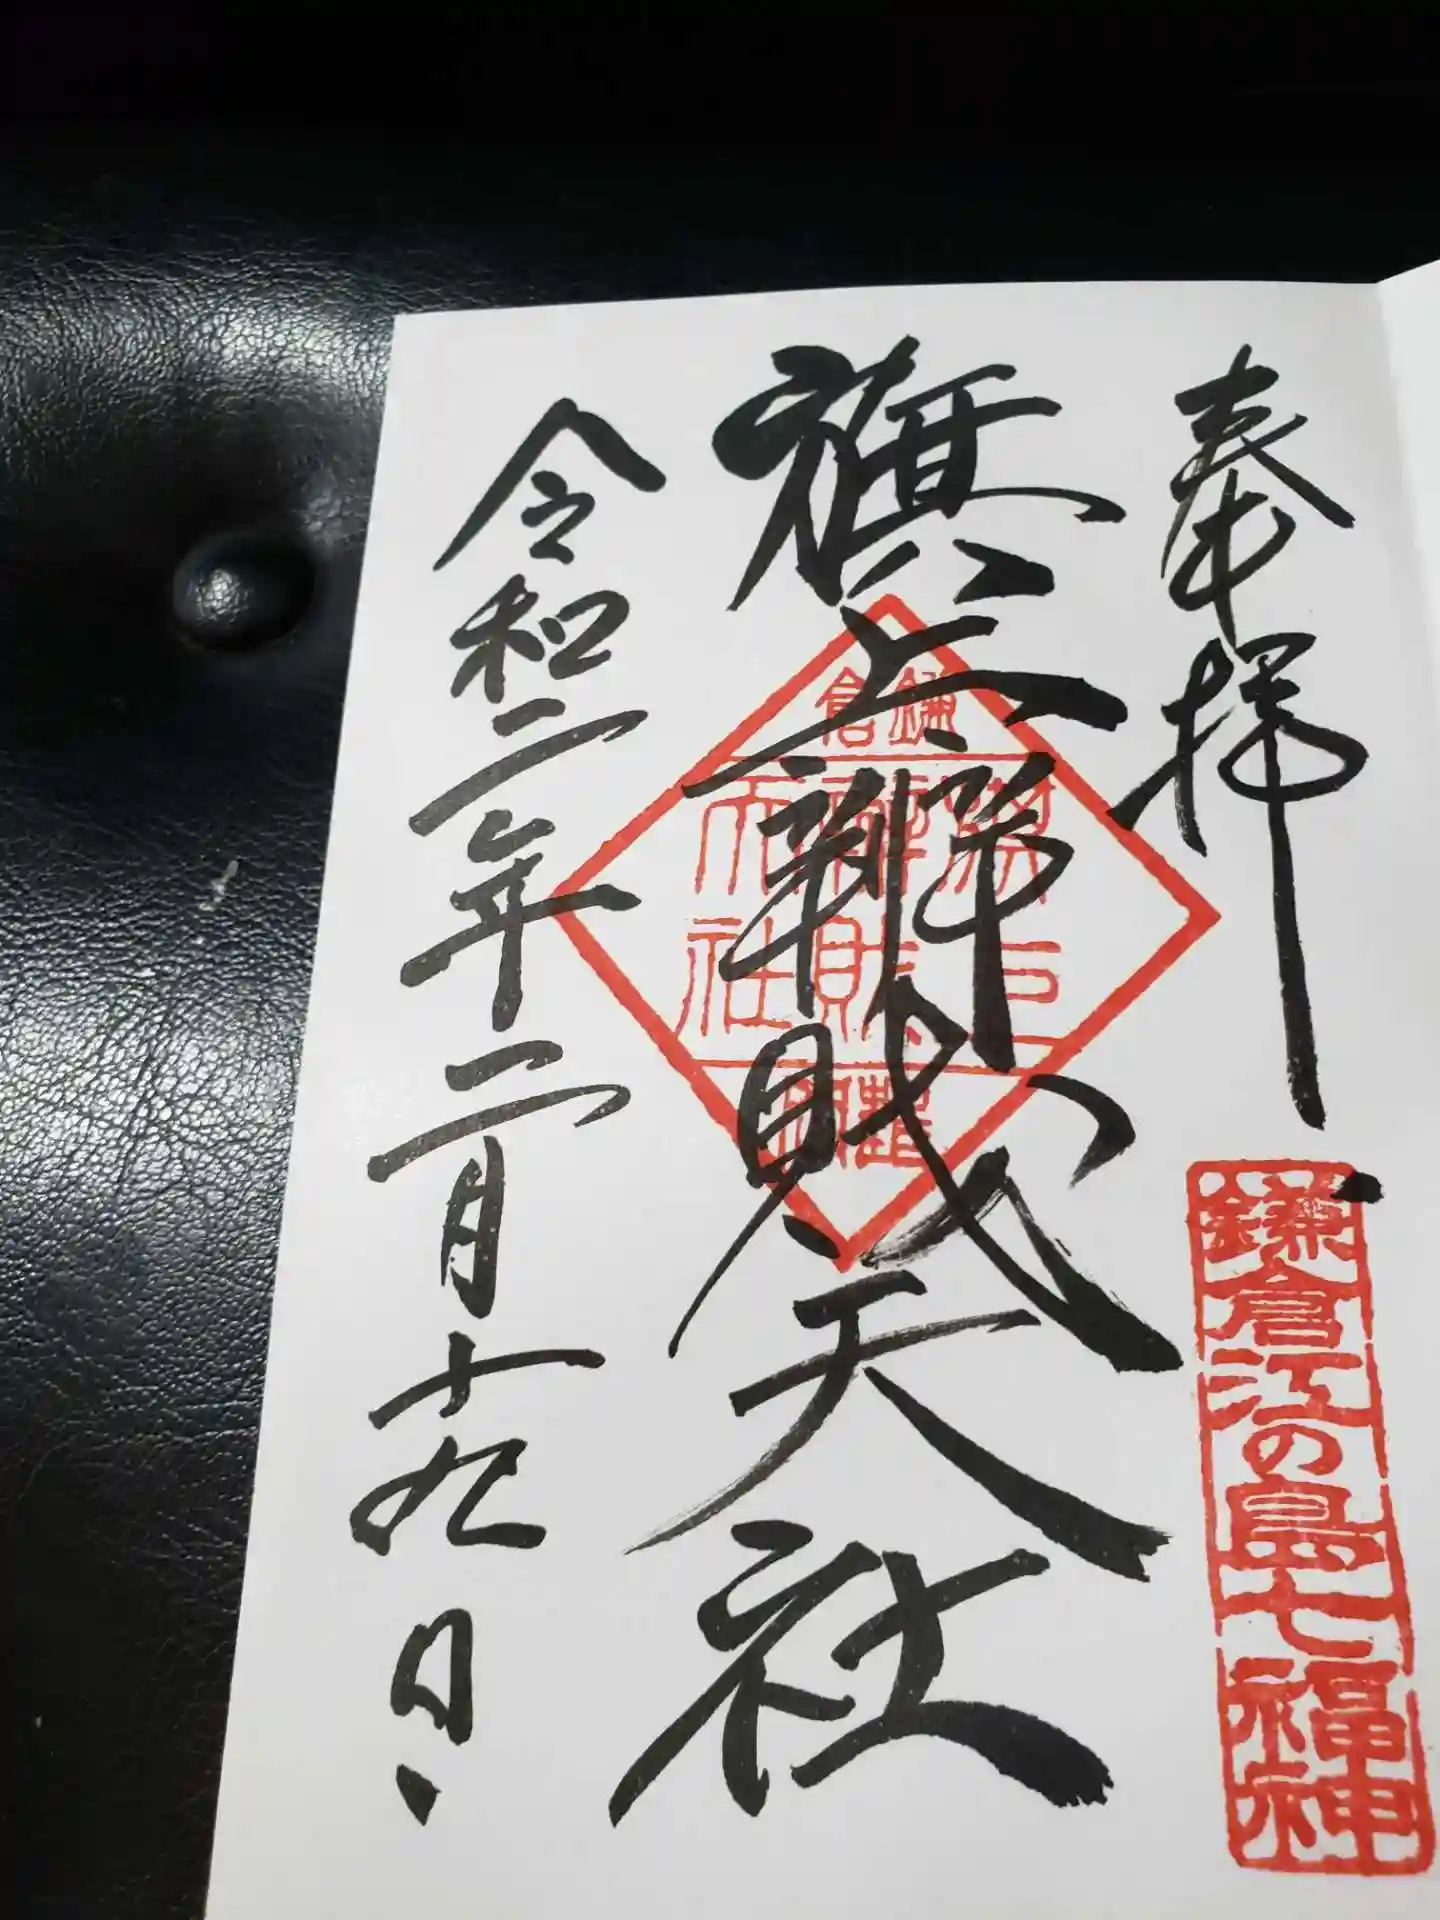 奉拝
鎌倉江の島七福神
旗上辨財天社
鎌倉
旗上
辨財
天社
令和二年二月十九日